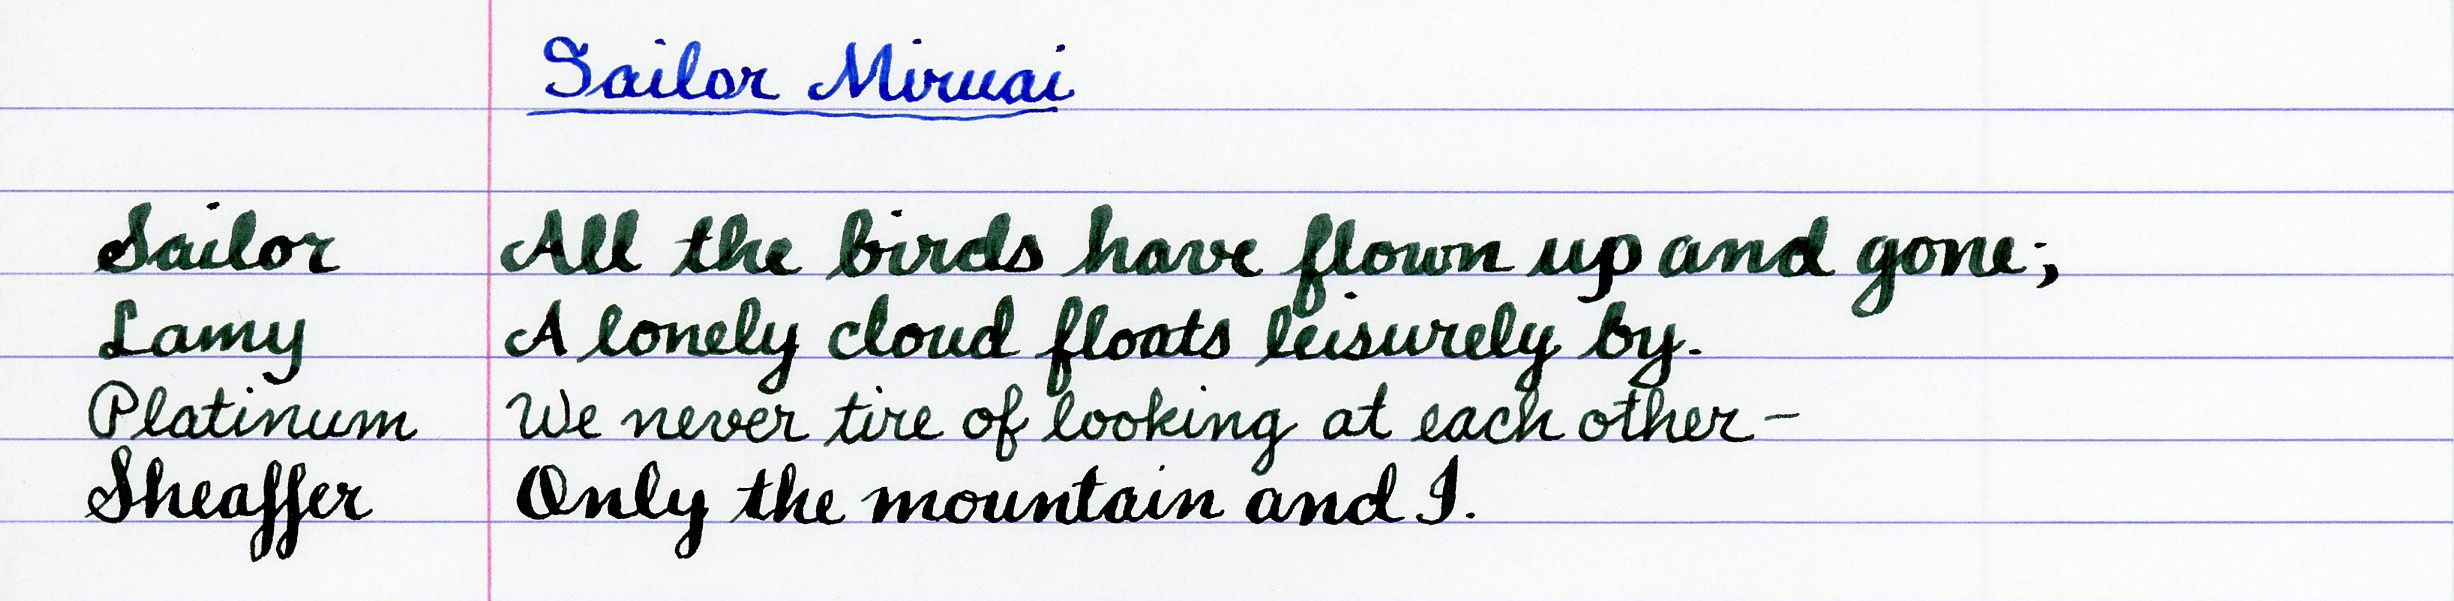 Sailor Miruai
Sailor All the birds have flown up and gone;
Lamy A lonely cloud floats leisurely by.
Platinum We never tire of looking at each other –
Sheaffer Only the mountain and I.